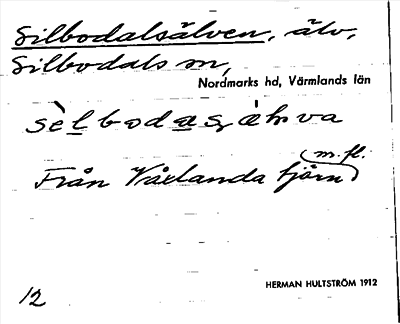 Silbodalsälven, älv,
Silbodals sn,
Nordmarks hd, Värmlands län
sèlbodasǫ älva
m. fl.
Från Våxlanda tjärn
12
HERMAN HULTSTRÖM 1912